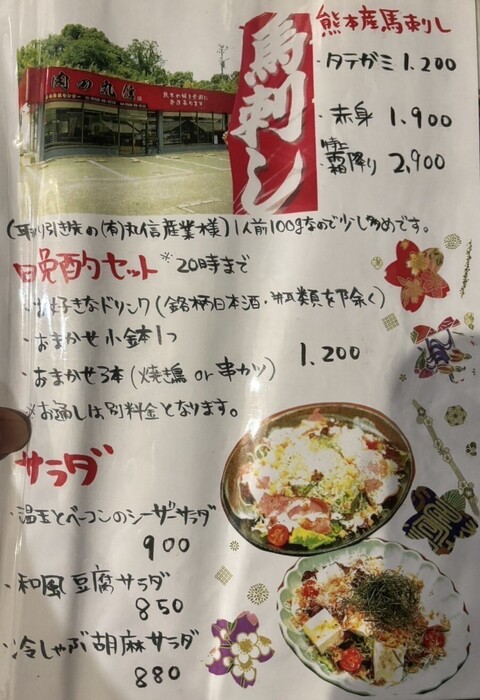 肉の丸信
馬刺し
熊本産馬刺し
・タテガミ 1.200
・赤身 1.900
・特上霜降り 2,900
(取り引き先の(有)丸信産業様)1人前100gなので少し多めです。
晩酌セット ※20時まで
・お好きなドリンク(銘柄日本酒・瓶類を除く)
・おまかせ小鉢1つ
・おまかせ3本(焼き鳥 or 串カツ)
1.200
※お通しは別料金となります。
サラダ
・温玉とベーコンのシーザーサラダ
900
・和風豆腐サラダ
850
・冷しゃぶ胡麻サラダ
880